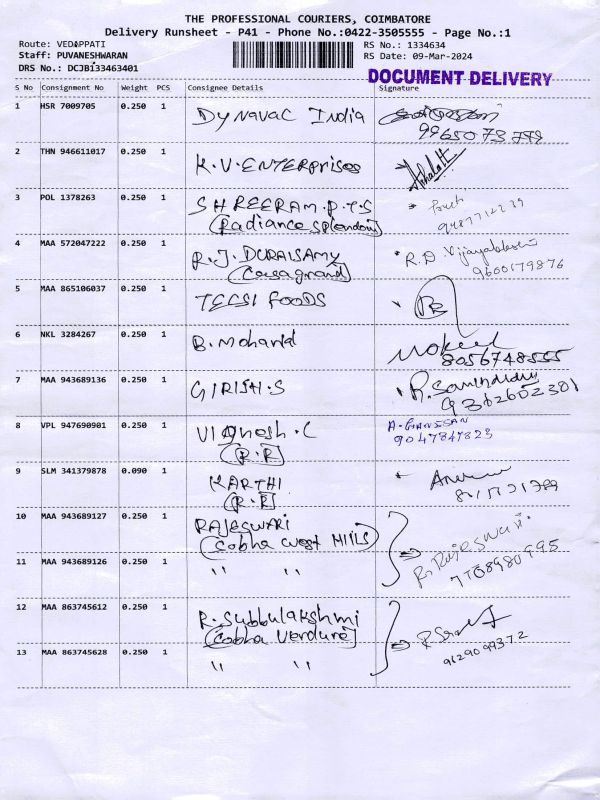 THE PROFESSIONAL COURIERS, COIMBATORE
Delivery Runsheet - P41 - Phone No.:0422-3505555 - Page No.:1
Route: VEDAPPATI RS No.: 1334634
Staff: PUVANESHWARAN RS Date: 09-Mar-2024
DRS No.: DCJB133463401 DOCUMENT DELIVERY
S No Consignment No Weight PCS Consignee Details Signature
1 HSR 7009705 0.250 1 Dynavac India
2 THN 946611017 0.250 1 K.V.ENTERPrises
3 POL 1378263 0.250 1 SHREERAM.P.T.S
(Radiance splendour)
4 MAA 572047222 0.250 1 R.J. DURAISAMY R.D. Vijayalakshmi
(Casagrand) 9600179876
5 MAA 865106037 0.250 1 TECSI FOODS
6 NKL 3284267 0.250 1 B. Mohanld
8056748555
7 MAA 943689136 0.250 1 GIRISH.S
9362602301
8 VPL 947690901 0.250 1 VIGnesh.C A. GANESAN
(R.R) 9047847823
9 SLM 341379878 0.090 1 KARTHI
(R.R)
10 MAA 943689127 0.250 1 RAJESWARI R. Rajeswari
(Sobha West Hills) 7708980995
11 MAA 943689126 0.250 1 " "
12 MAA 863745612 0.250 1 R. Subbulakshmi
(Sobha Verdure) 9629099372
13 MAA 863745628 0.250 1 " "